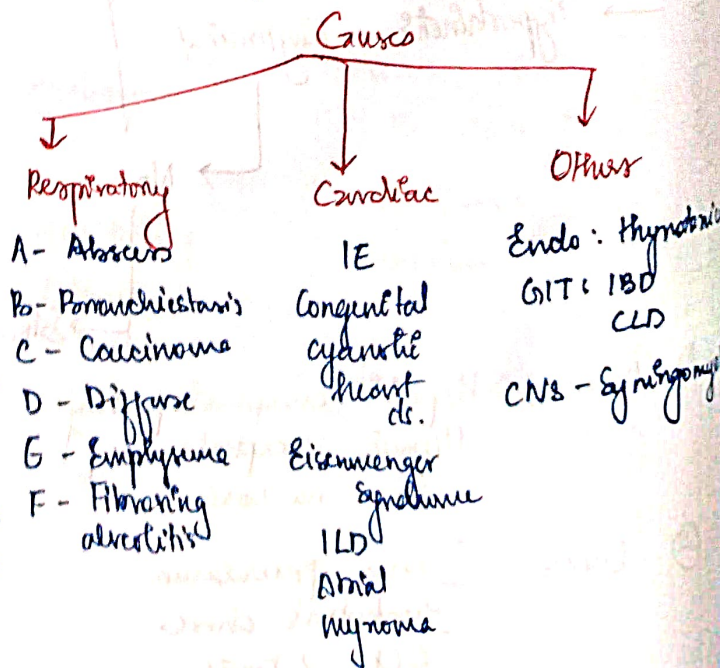 Causes
Respiratory
A - Abscess
B - Bronchiestasis
C - Carcinoma
D - Diffuse
E - Emphysema
F - Fibrosing
alveolitis
Cardiac
IE
Congenital
cyanotic
heart
ds.
Eisenmenger
Syndrome
ILD
Atrial
myxoma
Others
Endo : thyrotoxic
GIT : IBD
CLD
CNS - Syringomy